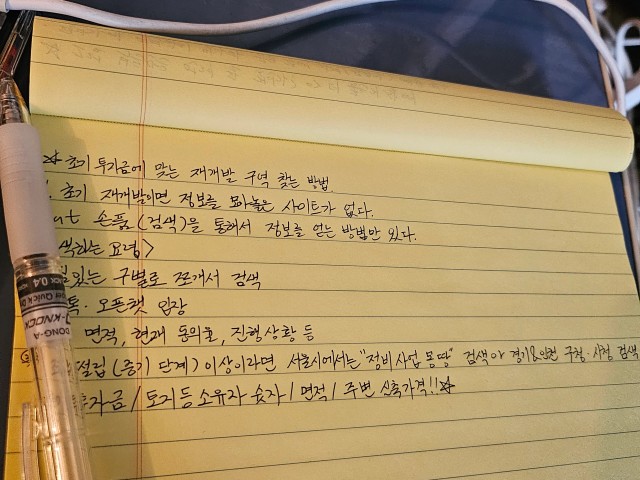 ☆ 초기 투자금에 맞는 재개발 구역 찾는 방법.
초기 재개발이면 정보를 모아놓은 사이트가 없다.
but 손품(검색)을 통해서 정보를 얻는 방법만 있다.
색하는 요령>
있는 구별로 쪼개서 검색
톡·오픈챗 입장
면적, 현재 동의율, 진행상황 등
설립(중기 단계) 이상이라면 서울시에서는 "정비사업 몽땅" 검색 or 경기&인천 구청·시청 검색
투자금 / 토지등소유자 숫자 / 면적 / 주변 신축가격!!☆
DONG-A
KNOCK 0.4